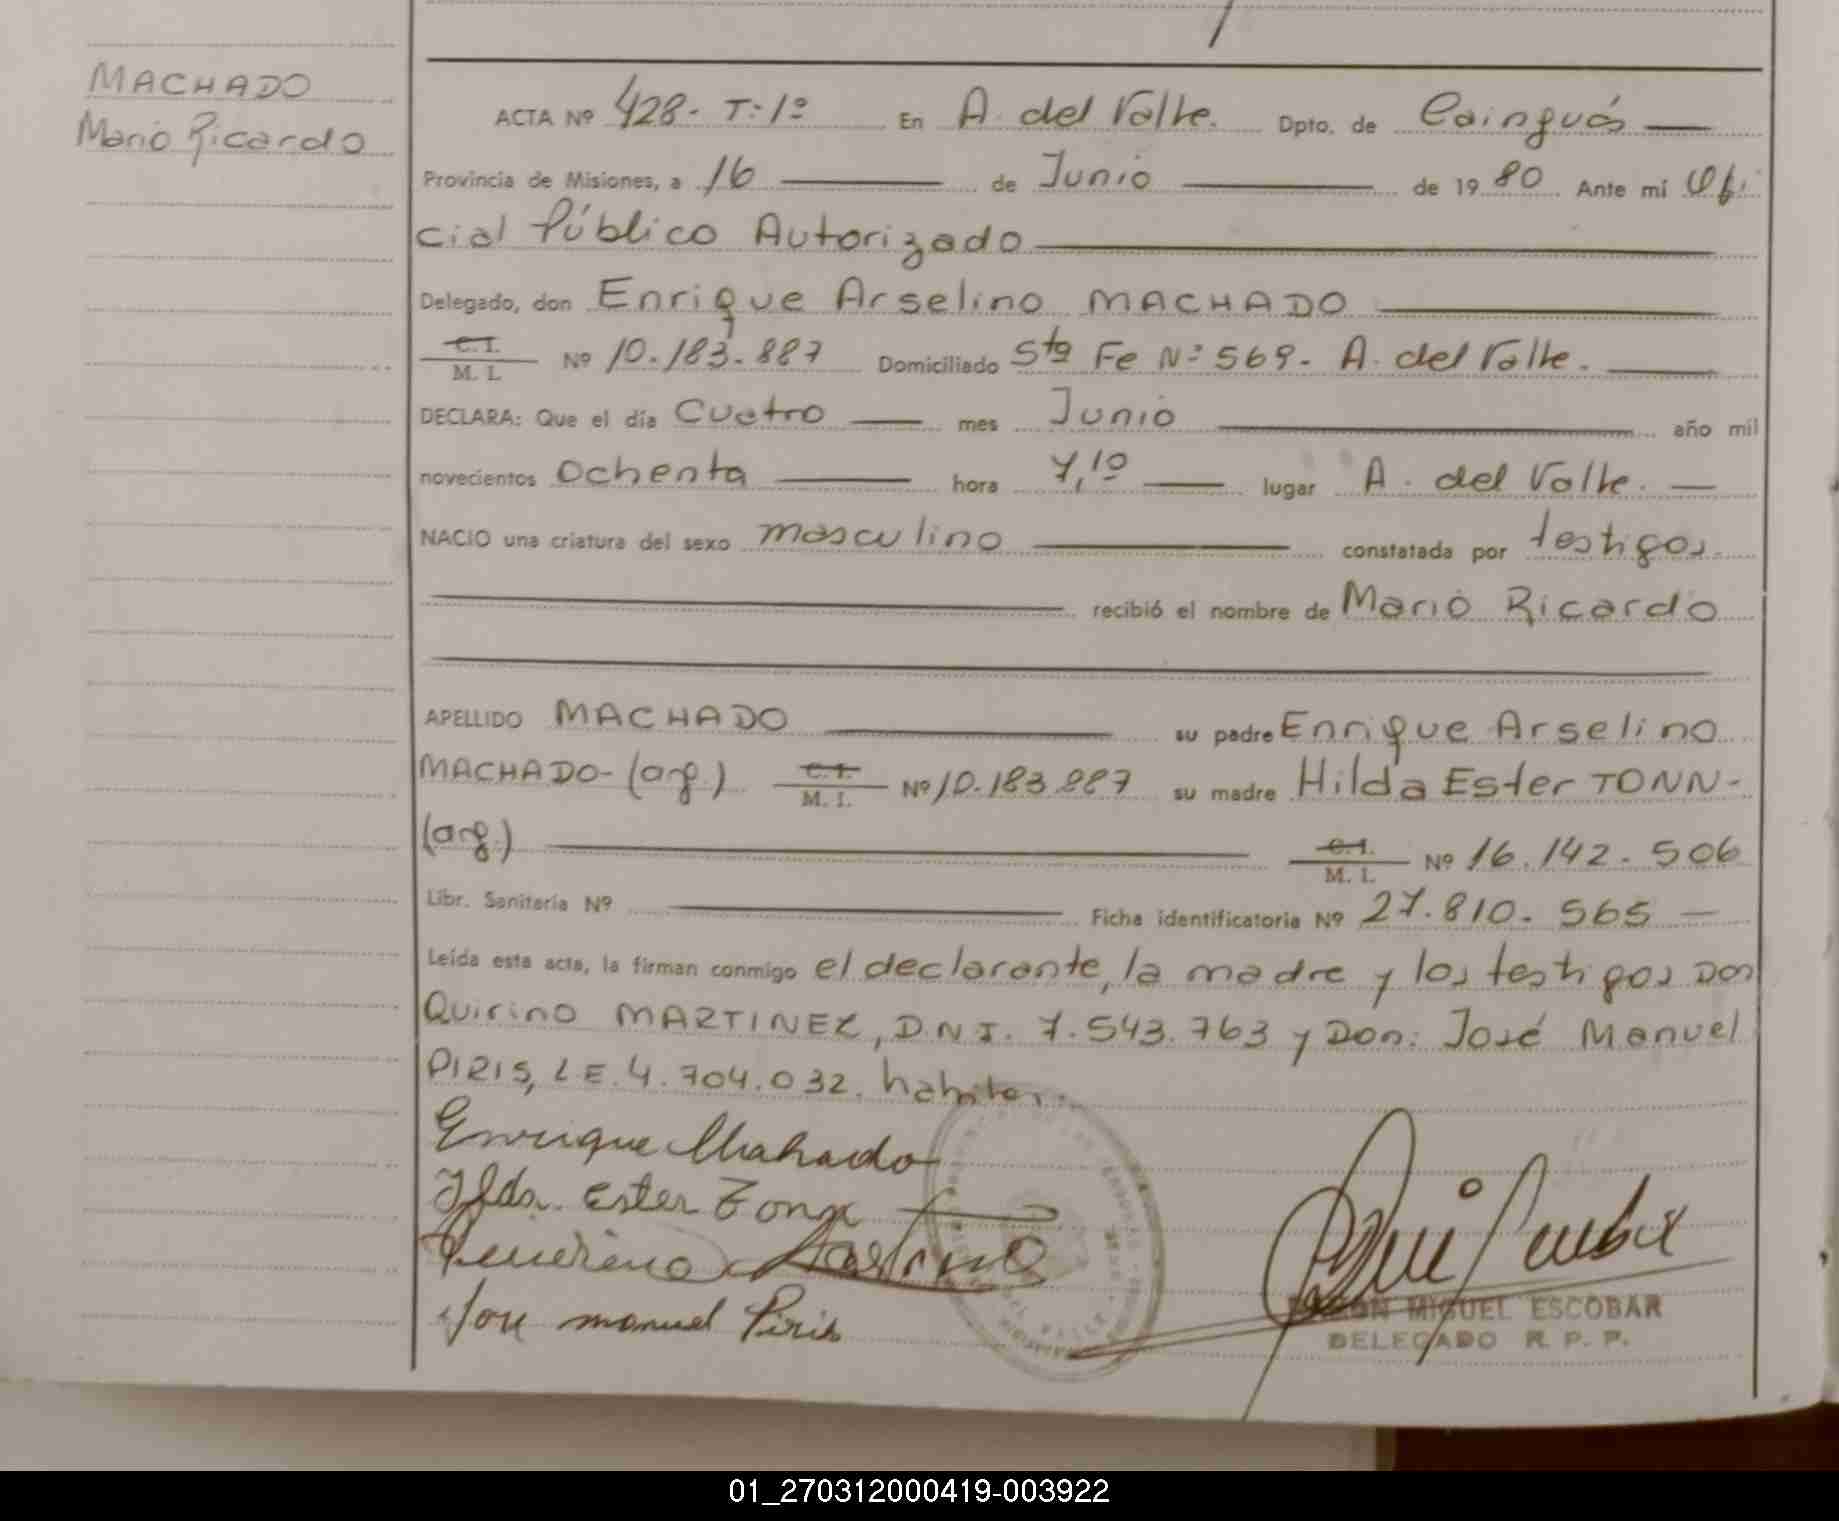 MACHADO
Mario Ricardo
ACTA Nº 428- T:1º En A. del Valle. Dpto. de Cainguás
Provincia de Misiones, a 16 de Junio de 1980 Ante mí Ofi
cial Público Autorizado
Delegado, don Enrique Arselino MACHADO
C.I.
M. I. Nº 10.183.887 Domiciliado Sta Fe Nº 569- A. del Valle.
DECLARA: Que el día Cuatro mes Junio año mil
novecientos Ochenta hora 7,10 lugar A. del Valle.
NACIO una criatura del sexo masculino constatada por testigos.
recibió el nombre de Mario Ricardo
APELLIDO MACHADO su padre Enrique Arselino
MACHADO- (arg.) C.I.
M. I. Nº 10.183.887 su madre Hilda Ester TONN-
(arg.) C.I.
M. I. Nº 16.142.506
Libr. Sanitaria Nº Ficha identificatoria Nº 27.810.565
Leída esta acta, la firman conmigo el declarante, la madre y los testigos Don
Quirino MARTINEZ, D.N.I. 7.543.763 y Don: José Manuel
PIRIS, L E. 4.704.032. habiten.
Enrique Machado
Ester
Jose manuel Piris
MIGUEL ESCOBAR
DELEGADO R. P. P.
01_270312000419-003922